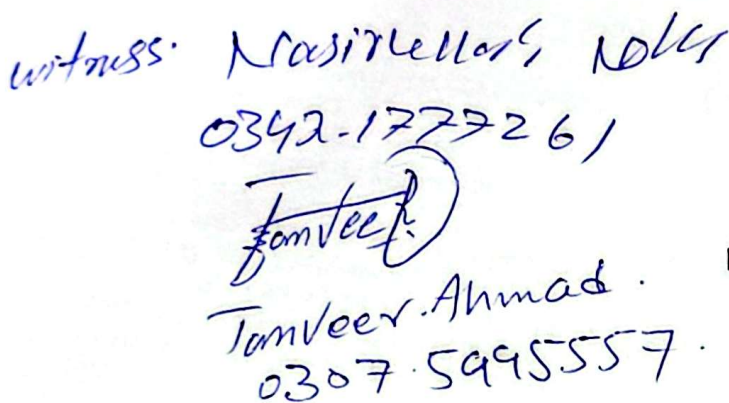 witness. Nasirullah
0342-1777261
Tanveer
Tanveer.Ahmad.
0307.5995557.